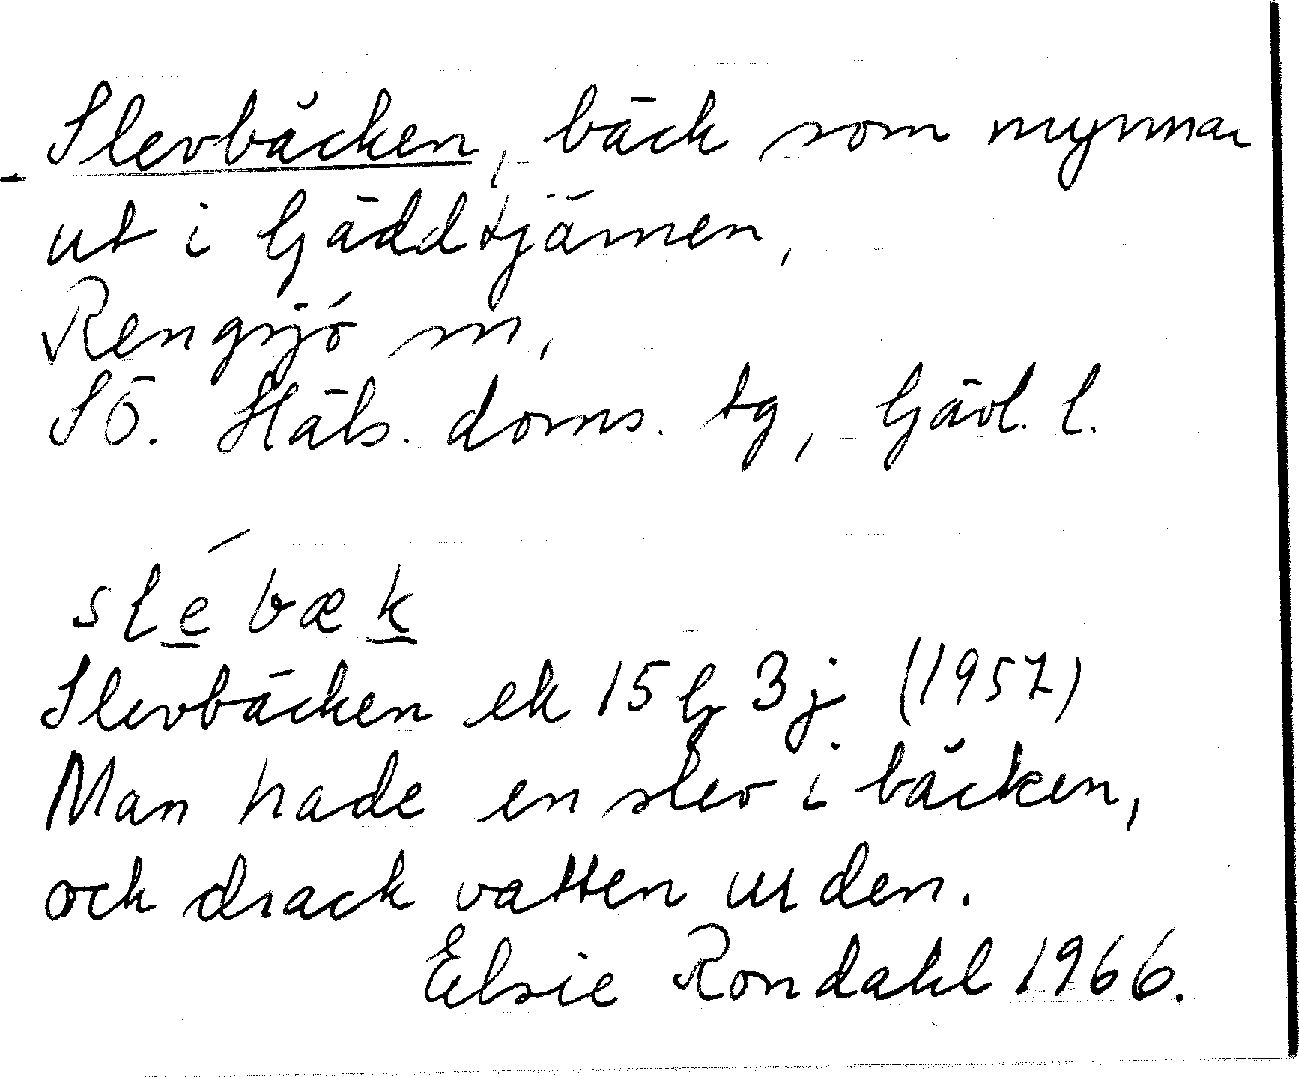 Slevbäcken, bäck som mynnar
ut i Gäddtjärnen,
Rengsjö sn,
SÖ. Häls. doms. tg, Gävl. l.
slébæk
Slevbäcken ek 15 h 3 j (1957)
Man hade en slev i bäcken,
och drack vatten ur den.
Elsie Rondahl 1966.